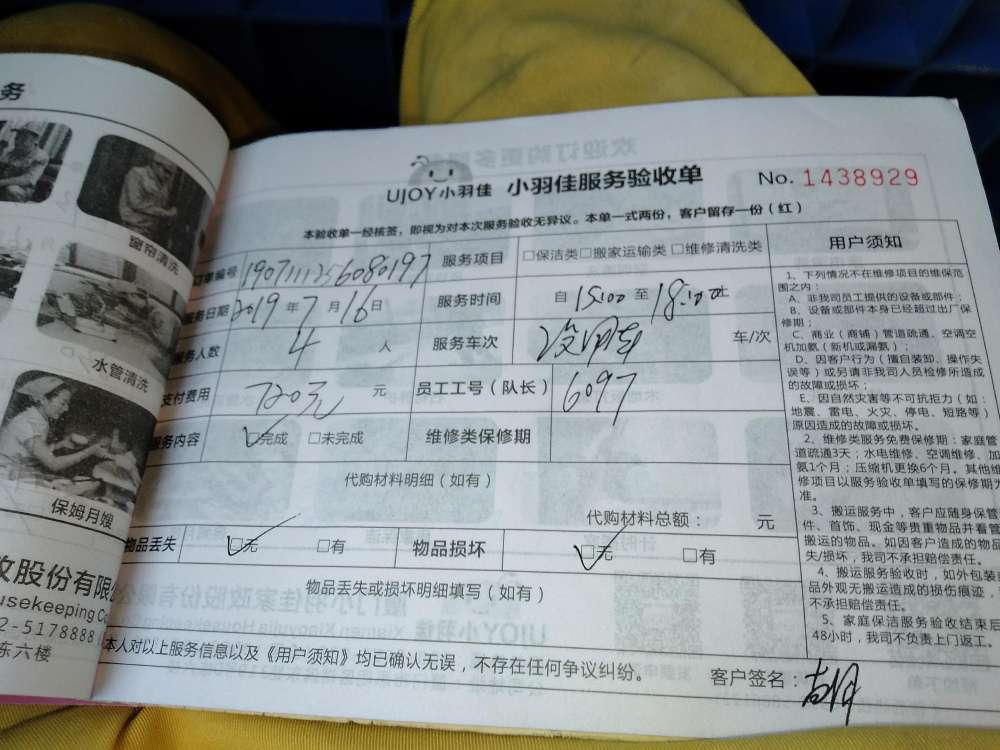 务
窗帘清洗
水管清洗
保姆月嫂
股份有限
usekeeping Co
2-5178888
东六楼
UJOY小羽佳 小羽佳服务验收单 No. 1438929
本验收单一经核签，即视为对本次服务验收无异议。本单一式两份，客户留存一份（红）
订单编号 1907111256080197 服务项目 □保洁类□搬家运输类□维修清洗类
服务日期 2019 年 7 月 16 日 服务时间 自 15:00 至
服务人数 4 人 服务车次 车/次
支付费用 720元 元 员工工号（队长） 6097
服务内容 □完成 □未完成 维修类保修期
代购材料明细（如有）
代购材料总额： 元
物品丢失 □无 □有 物品损坏 □无 □有
物品丢失或损坏明细填写（如有）
本人对以上服务信息以及《用户须知》均已确认无误，不存在任何争议纠纷。
客户签名：
用户须知
1、下列情况不在维修项目的维保范
围之内：
A、非我司员工提供的设备或部件；
B、设备或部件本身已经超过出厂保
修期；
C、商业（商铺）管道疏通、空调空
机加氨（新机或漏氨）；
D、因客户行为（擅自装卸、操作失
误等）或另请非我司人员检修所造成
的故障或损坏；
E、因自然灾害等不可抗拒力（如：
地震、雷电、火灾、停电、短路等）
原因造成的故障或损坏。
2、维修类服务免费保修期：家庭管
道疏通3天；水电维修、空调维修、加
氨1个月；压缩机更换6个月。其他维
修项目以服务验收单填写的保修期为
准。
3、搬运服务中，客户应随身保管
件、首饰、现金等贵重物品并看管
搬运的物品。如因客户造成的物品
失/损坏，我司不承担赔偿责任。
4、搬运服务验收时，如外包装
品外观无搬运造成的损伤痕迹，
不承担赔偿责任。
5、家庭保洁服务验收结束后
48小时，我司不负责上门返工。